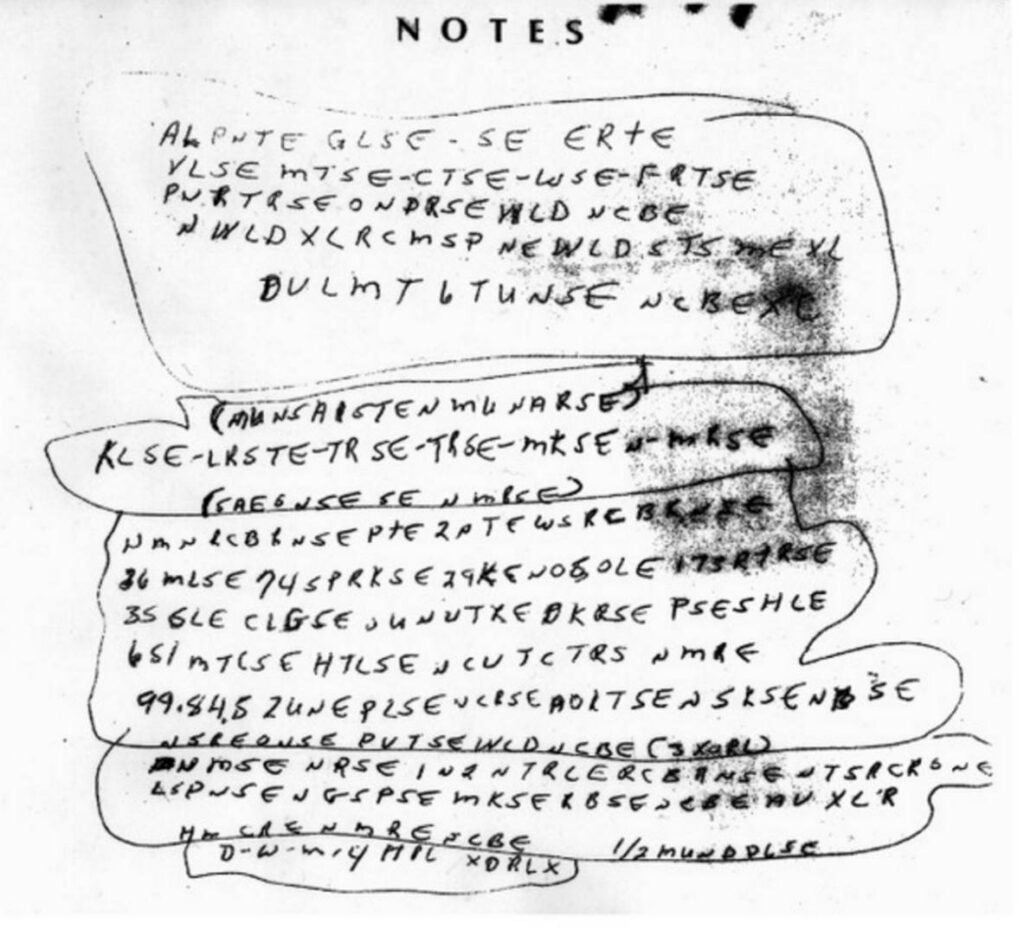 NOTES
ALPNTE GLSE - SE ERTE
VLSE MTSE-CTSE-WSE-FRTSE
PNRTRSEONDRSEWLD NCBE
NWLDXLRCMSP NEWLDSTSMEXL
DULMT6TUNSE NCBEXC
(MUNSAISTENMUNARSE)
KLSE-LRSTE-TRSE-TRSE-MKSEN-MRSE
(SAEGNSESE NMRSE)
NMNRCBRNSEPTE2PTEWSRCBRNSE
36 MLSE 74SPRKSE29KENOSOLE 173RTRSE
35 GLE CLGSE UUNUTXE DKRSE PSESHLE
651MTCSE HTLSE NCUTCTRS NMRE
99.84.5 ZUNEPLSENCRSEAOLTSENSKSENBSE
NSREONSE PUTSEWLDNCBE (3XORL)
NMSE NRSE IN2NTRLERCBRNSE NTSRCRBNE
LSPNSENGSPSE MKSERBSENCBEAUXL'R
HM CRENMRENCBE
1/2MUNDDLSE
D-W-M-4 MIL XDRLX